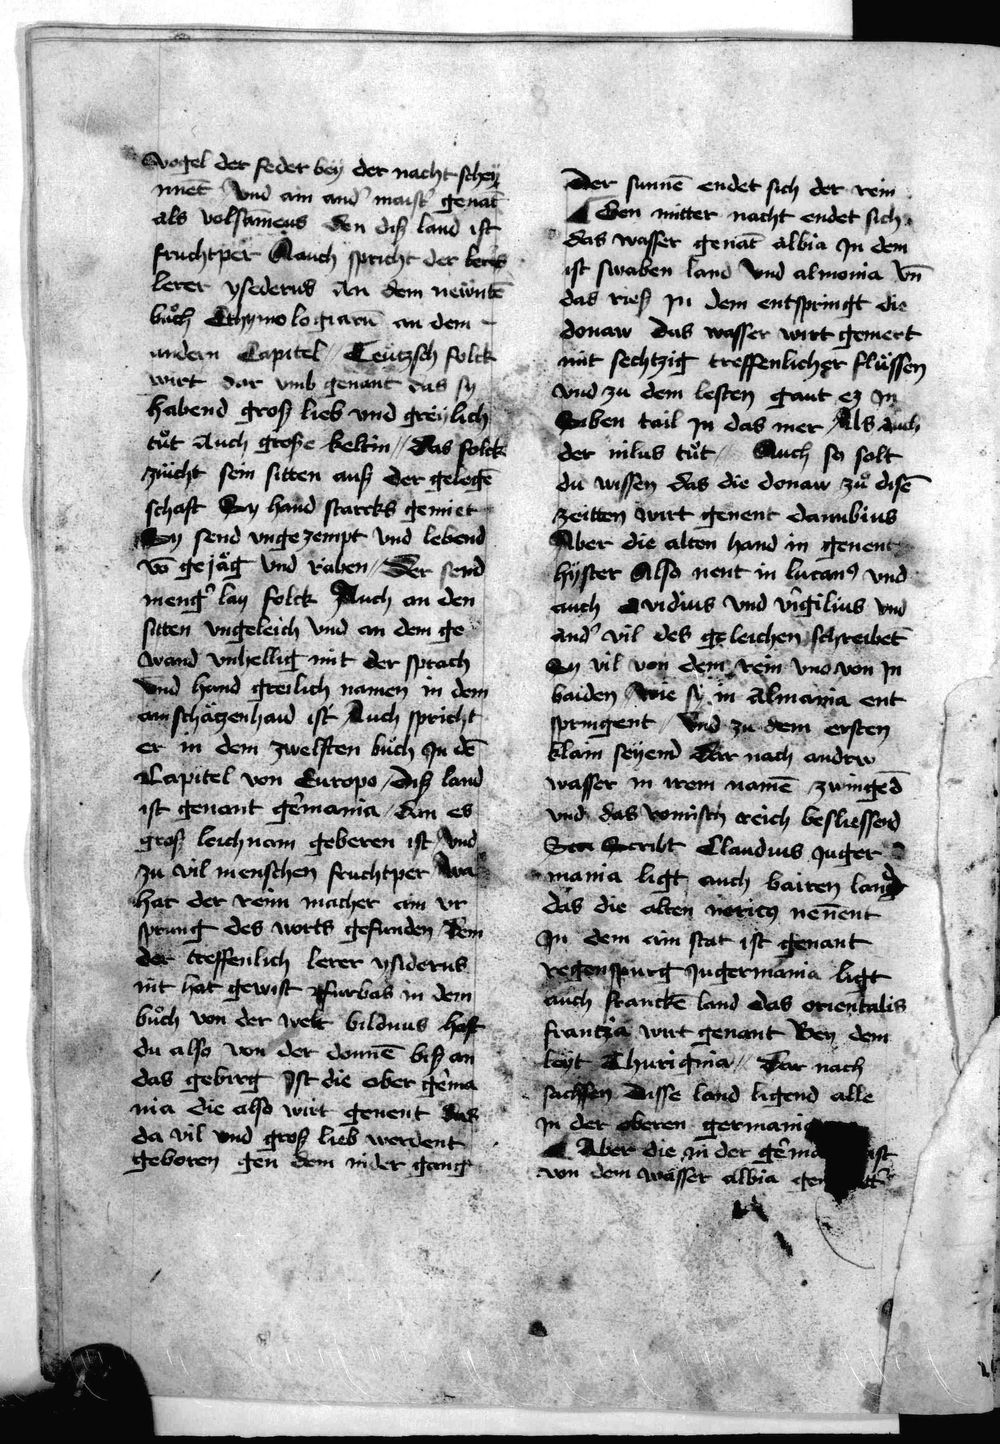 vogel der feder bey der nacht schey
nnēt Vnd ain and' maist' genāt
als volsameus den diß land ist
fruchtper Aauch spricht der
lerer ysederus An dem neẅntē
bůch Ethymologiarū an dem
andern Capitel // Teützsch folck
wirt dar vmb genant das sy
habend groß lieb vnd greylich
tůt Auch große keltin // Das folck
zücht sein sitten auß der gelegē
schaft Sy hand starcks gemiet
Sy send vngezempt vnd lebend
vō gejäg vnd raben // Der send
meng' lay folck Auch an den
sitten vngeleich vnd an dem ge
wand vnhellig mit der sprach
vnd hand greilich namen in dem
ain schätzenhaud ist Auch spricht
er in dem zwelften bůch In dē
Capitel von Europo / diß land
ist genant gērmania / dan es
groß leichnam geberen ist / vnd
zu vil menschen fruchtper / wa
hat der reim macher ain vr
sprung des worts gefunden / Dem
der treffenlich lerer ysiderus
nit hat gewist furbas in dem
bůch von der welt bildnus hast
du also von der donnē biß an
das gebirg Ist die ober gērma
nia die also wirt genent das
da vil vnd groß lieb werdent
geboren gen dem nider gang
Der sunnē endet sich der rein
Gen mitter nacht endet sich
das wasser genāt albia In dem
ist swaben land vnd almonia vn̄
das rieß In dem entspringt die
donaw das wasser wirt gemert
mit sechtzig treffenlicher flüssen
vnd zu dem lesten gaut ez In
Siben tail In das mer Als auch
der nilus tůt // Auch so solt
du wissen das die donaw zů disē
zeitten wirt genent danubius
Aber die alten hand in genent
hyster Also nent in lucan9 vnd
auch ovidius vnd virgilius vnd
and' vil des geleichen schreibēt
Sy vil von dem rein vnd von In
baiden / wie sy in Almania ent
springent / Vnd zu dem ersten
klain seyend Dar nach andrw
wasser in irem namē zwingēd
vnd das romisch reich besliessend
Scribt Claudius Juger
mania ligt auch bairen land
das die alten noricus nennent
In dem ain stat ist genant
regenspurg Ingermania ligt
auch francke land das orientalis
frantzia wirt genant Bey dem
leyt Thurignia // Dar nach
sachsen Disse land ligend alle
In der oberen germania
Aber die in der gērma ist
von dem wasser albia gen